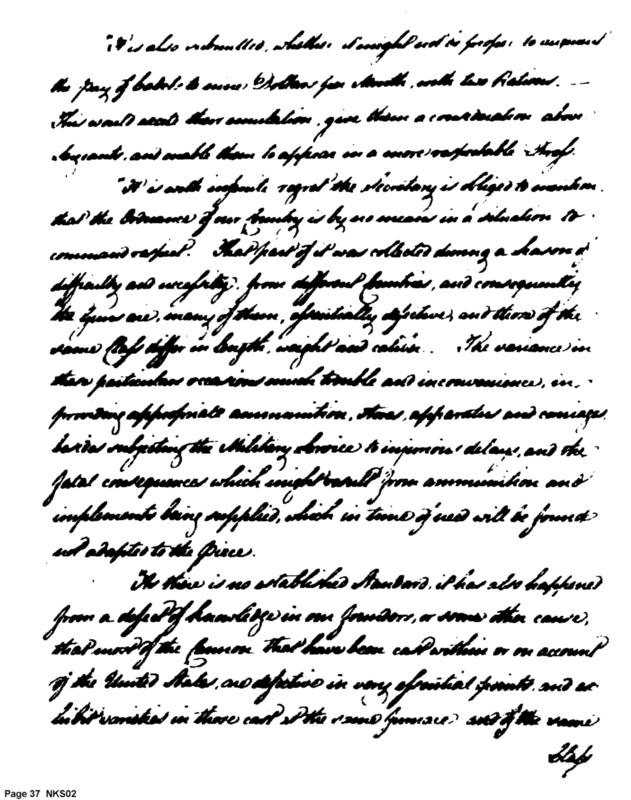 "It is also submitted, whether it might not be proper to augment
the pay of Cadets to nine Dollars per Month, with two Rations. —
This would excite their emulation, give them a consideration above
Serjeants, and enable them to appear in a more respectable Dress.
"It is with infinite regret the Secretary is obliged to mention
that the Ordnance of our Country is by no means in a situation to
command respect. That part of it was collected during a season of
difficulty and necessity, from different Countries, and consequently
the Guns are, many of them, essentially defective, and those of the
same Class differ in length, weight and caliber. The variance in
these particulars occasions much trouble and inconvenience, in
providing appropriate ammunition, stores, apparatus and carriages,
besides subjecting the Military Service to injurious delays, and the
fatal consequences which might result from ammunition and
implements being supplied, which in time of need will be found
not adapted to the Piece.
"As there is no established Standard, it has also happened
from a defect of knowledge in our founders, or some other cause,
that most of the Cannon that have been cast within or on account
of the United States, are defective in very essential points, and ex
hibit varieties in those cast at the same furnace and of the same
Class
Page 37 NKS02